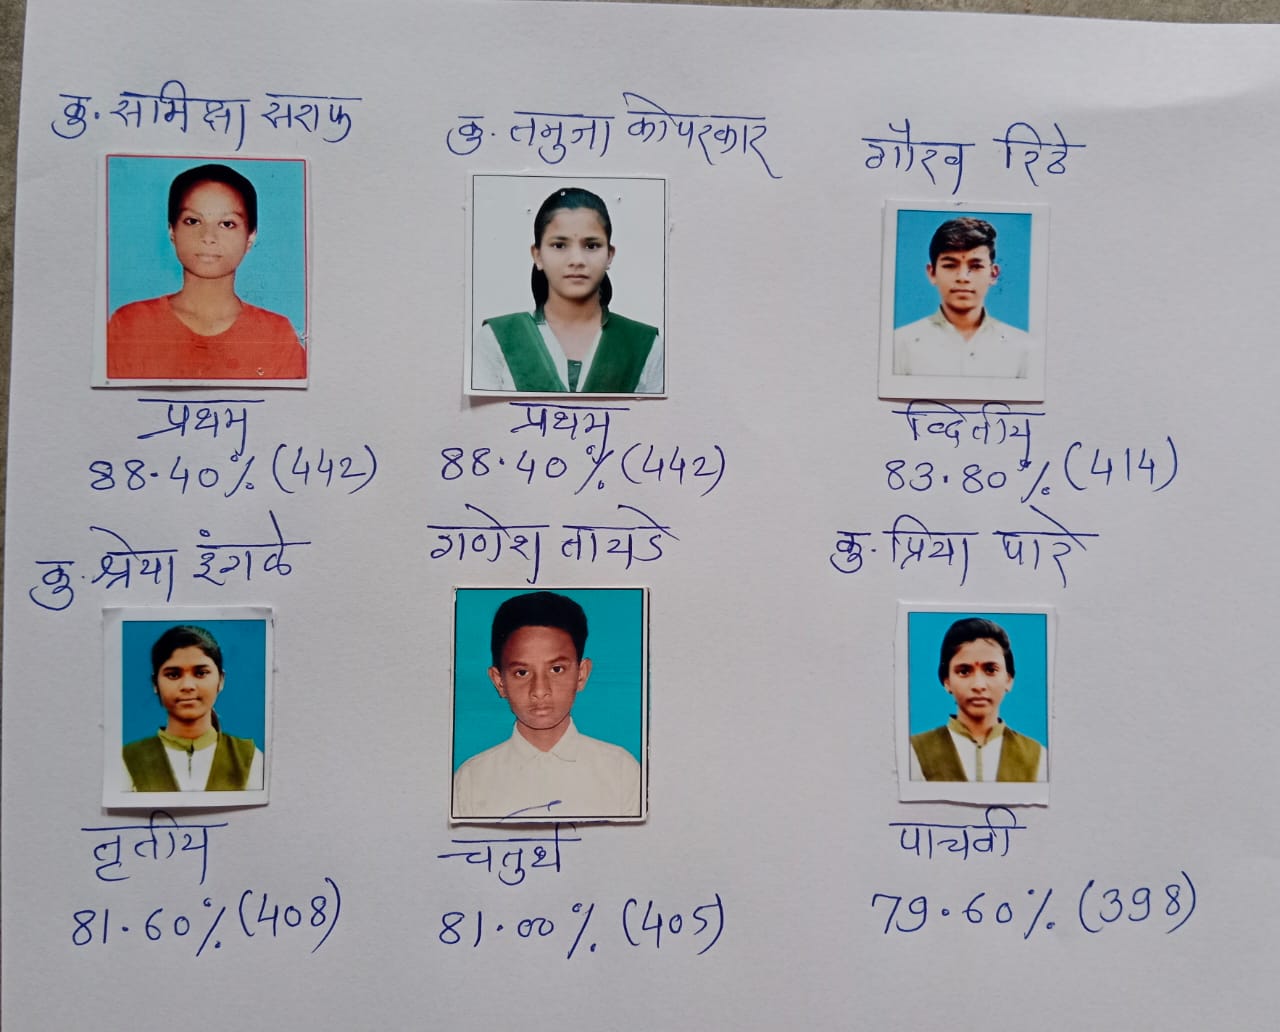 कु. समिक्षा सराफ
कु. तनुजा कोपरकार
गौरव रिठे
प्रथम
88.40% (442)
प्रथम
88.40% (442)
व्दितीय
83.80% (414)
कु. श्रेया इंगळे
गणेश तायडे
कु. प्रिया पारे
तृतीय
81.60% (408)
चतुर्थ
81.00% (405)
पाचवी
79.60% (398)